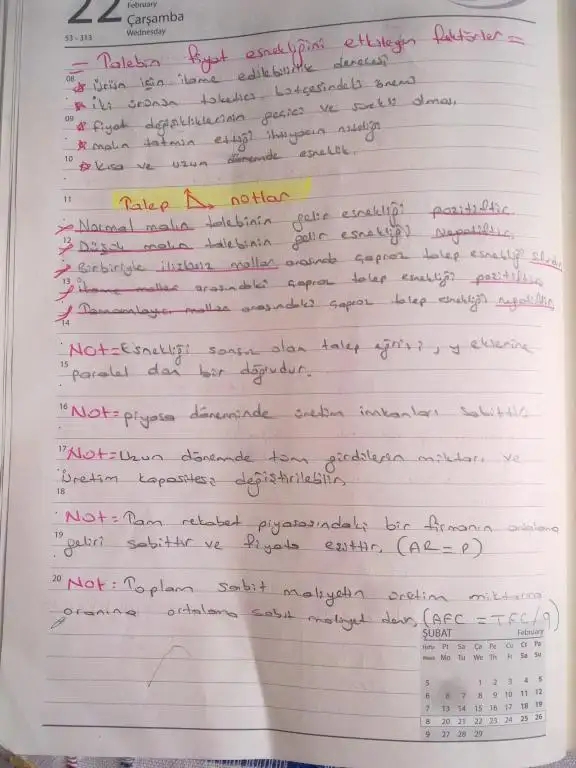 22
February
Çarşamba
Wednesday
53 - 313
= Talebin fiyat esnekliğini etkileyen faktörler =
08 ☆ Ürün için ikame edilebilirlik derecesi
☆ İki ürünün tüketici bütçesindeki önemi
09 ☆ fiyat değişikliklerinin geçici ve sürekli olması
☆ malın tatmin ettiği ihtiyacın niteliği
10 ☆ Kısa ve uzun dönemde esneklik.
11
Talep notlar
Normal malın talebinin gelir esnekliği pozitiftir.
12 Düşük malın talebinin gelir esnekliği negatiftir.
Birbiriyle ilişkisiz mallar arasında çapraz talep esnekliği sıfırdır
13 İkame mallar arasındaki çapraz talep esnekliği pozitiftir
Tamamlayıcı mallar arasındaki çapraz talep esnekliği negatiftir
14
Not = Esnekliği sonsuz olan talep eğrisi, y eksenine
15 paralel olan bir doğrudur.
16 Not = piyasa döneminde üretim imkanları sabittir
17 Not = Uzun dönemde tüm girdilerin miktarı ve
üretim kapasitesi değiştirilebilir,
18
Not = Tam rekabet piyasasındaki bir firmanın ortalama
19 geliri sabittir ve fiyata eşittir, (AR = P)
20 Not : Toplam sabit maliyetin üretim miktarına
oranına ortalama sabit maliyet denir, (AFC = TFC/q)
ŞUBAT February
Hafta Pt Sa Ça Pe Cu Ct Pa
Week Mo Tu We Th Fr Sa Su
5 1 2 3 4 5
6 6 7 8 9 10 11 12
7 13 14 15 16 17 18 19
8 20 21 22 23 24 25 26
9 27 28 29